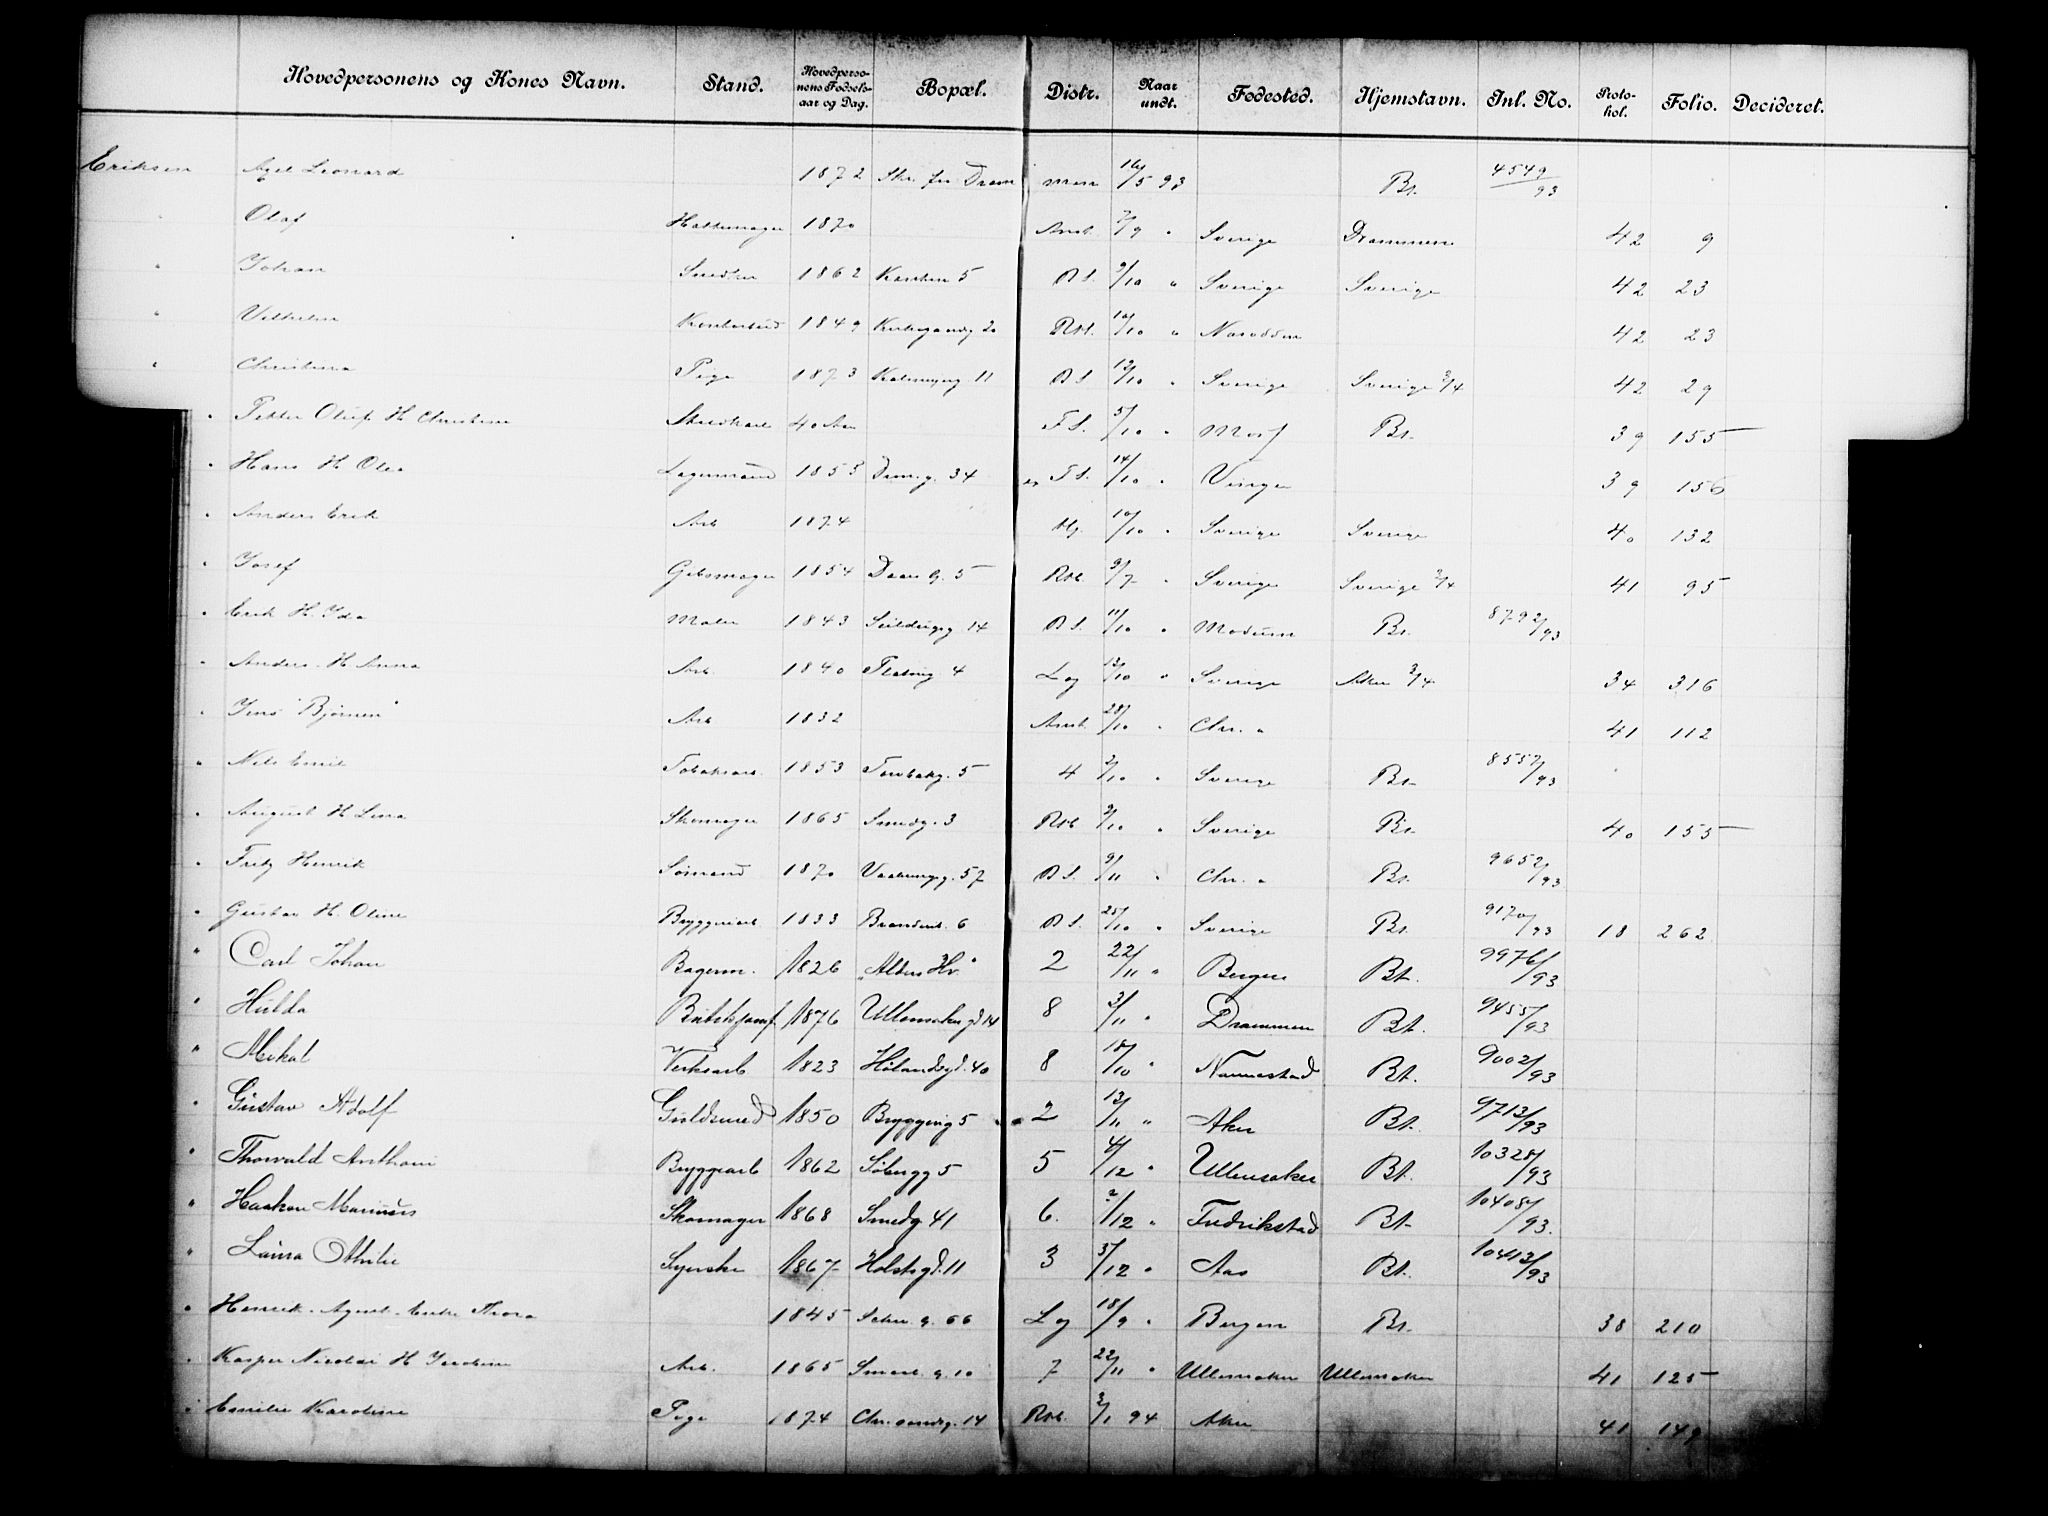 Hovedpersonens og Kones Navn. Stand. Hovedperso-nens Fødsels-aar og Dag. Bopæl. Distr. Naar undt. Fødested. Hjemstavn. Inl. No. Proto-kol. Folio. Decideret.
Eriksen Axel Leonard 1872 Skr. fra Drammen 16/5 93 Bt. 4549/93
" Olaf Hattemager 1870 Anst. 7/9 " Sverige Drammen 42 9
" Johan Snedker 1862 5 B S. 9/10 " Sverige Sverige 42 23
" Vilhelm Kontorbud 1849 Kirkegaardsg 20 Rst. 10/10 " Næsodden 42 23
" Christina Pige 1873 11 B S. 12/10 " Sverige Sverige 3/4 42 29
" Petter Oluf H Christine 40 Aar F S. 5/10 " Moss Bt. 39 155
" Hans H Olea Lagermand 1853 Dam.g. 34 F S. 14/10 " Vinger 39 156
" Anders Erik Arb 1874 10/10 " Sverige Sverige 40 132
" Josef Gibsmager 1854 Daae g. 5 Rst. 3/7 " Sverige Sverige 3/4 41 95
" Erik H. Ida Maler 1843 Seildugsg. 14 B S. 11/10 " Modum Bt. 8792/93
" Anders H Anna Arb 1840 4 Log 12/10 " Sverige Aker 3/4 34 316
" Jens "Bjørnen" Arb 1832 Anst. 28/10 " Chr. a 41 112
" Nils Emil Tobaksarb. 1853 Torvbakg. 5 4 2/10 " Sverige Bt. 8557/93
" August H Lina Skomager 1865 Smedg. 3 Rst 9/10 " Sverige Bt. 40 155
" Fritz Henrik Sømand 1870 Vaalerengg. 57 B S. 9/11 " Chr. a Bt. 9652/93
" Gustav H. Oline Bryggearb. 1833 6 B S. 25/10 " Sverige Bt. 9170/93 18 262
" Carl Johan Bagerm. 1826 "Alders Hv." 2 22/11 " Bergen Bt. 9976/93
" Hulda Butikjomf 1876 Ullensaker gd 14 8 3/11 " Drammen Bt. 9455/93
" Mikal Verksarb 1823 Hølandsgd. 40 8 18/10 " Nannestad Bt. 9002/93
" Gustav Adolf Guldsmed 1850 Bryggerig 5 2 13/11 " Aker Bt. 9713/93
" Thorvald Anthoni Bryggearb 1862 Søbergg 5 5 4/12 " Ullensaker Bt. 10328/93
" Haakon Marinius Skomager 1868 Smedg 41 6. 2/12 " Fredrikstad Bt. 10408/93.
" Laura Othilie Syerske 1867 Holstsgd. 11 3 5/12 " Aas Bt. 10413/93
" Henrik August Enke Thora 1845 Schu. g. 66 Log 18/9 " Bergen Bt. 38 210
" Kasper Nicolai H Arb. 1865 Smal. g. 10 7 22/11 " Ullensaker Ullensaker 41 125
" Emilie Karoline Pige 1874 14 Rst. 3/1 94 Aker 41 149